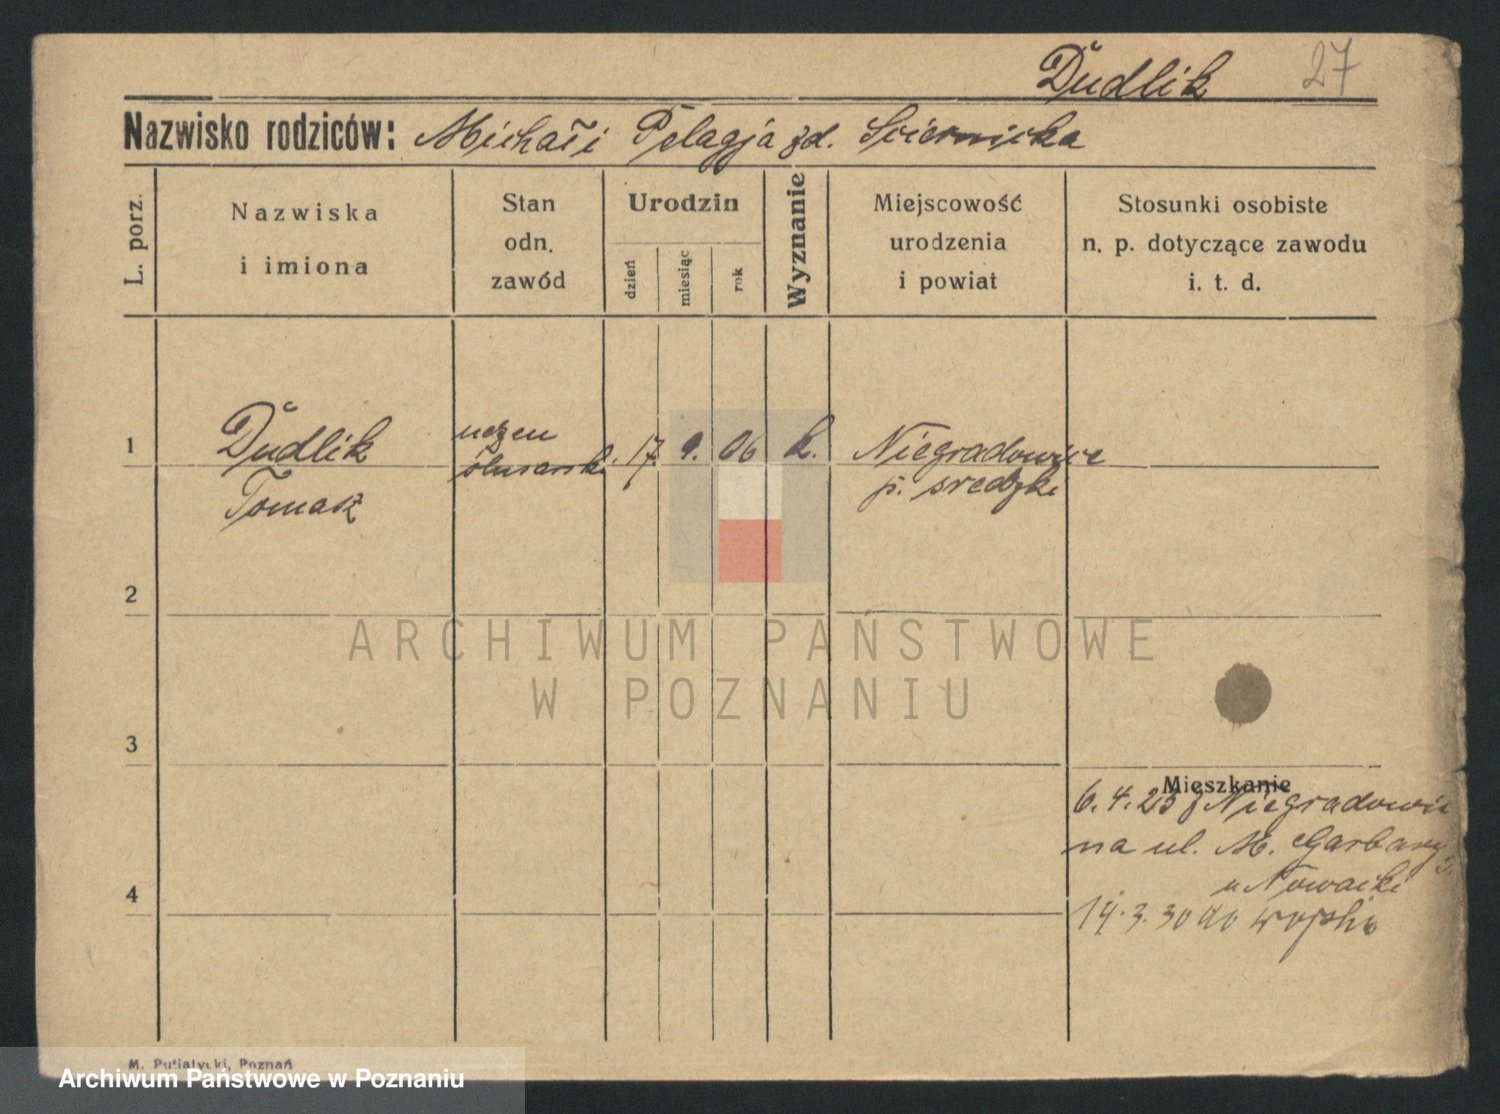 Dudlik 27
Nazwisko rodziców: Michał i Pelagja zd. Sciernicka
L. porz.
Nazwiska
i imiona
Stan
odn.
zawód
Urodzin
dzień
miesiąc
rok
Wyznanie
Miejscowość
urodzenia
i powiat
Stosunki osobiste
n. p. dotyczące zawodu
i. t. d.
1 Dudlik uczeń 17. 9. 06 k. Niegradowice
ślusarski
Tomasz p. sredzki
2
ARCHIWUM PAŃSTWOWE
W POZNANIU
3
Mieszkanie
6.4.23 z
na ul. M. Garbary
u
4
14.3.30 do wojska
M. Putiatycki, Poznań
Archiwum Państwowe w Poznaniu